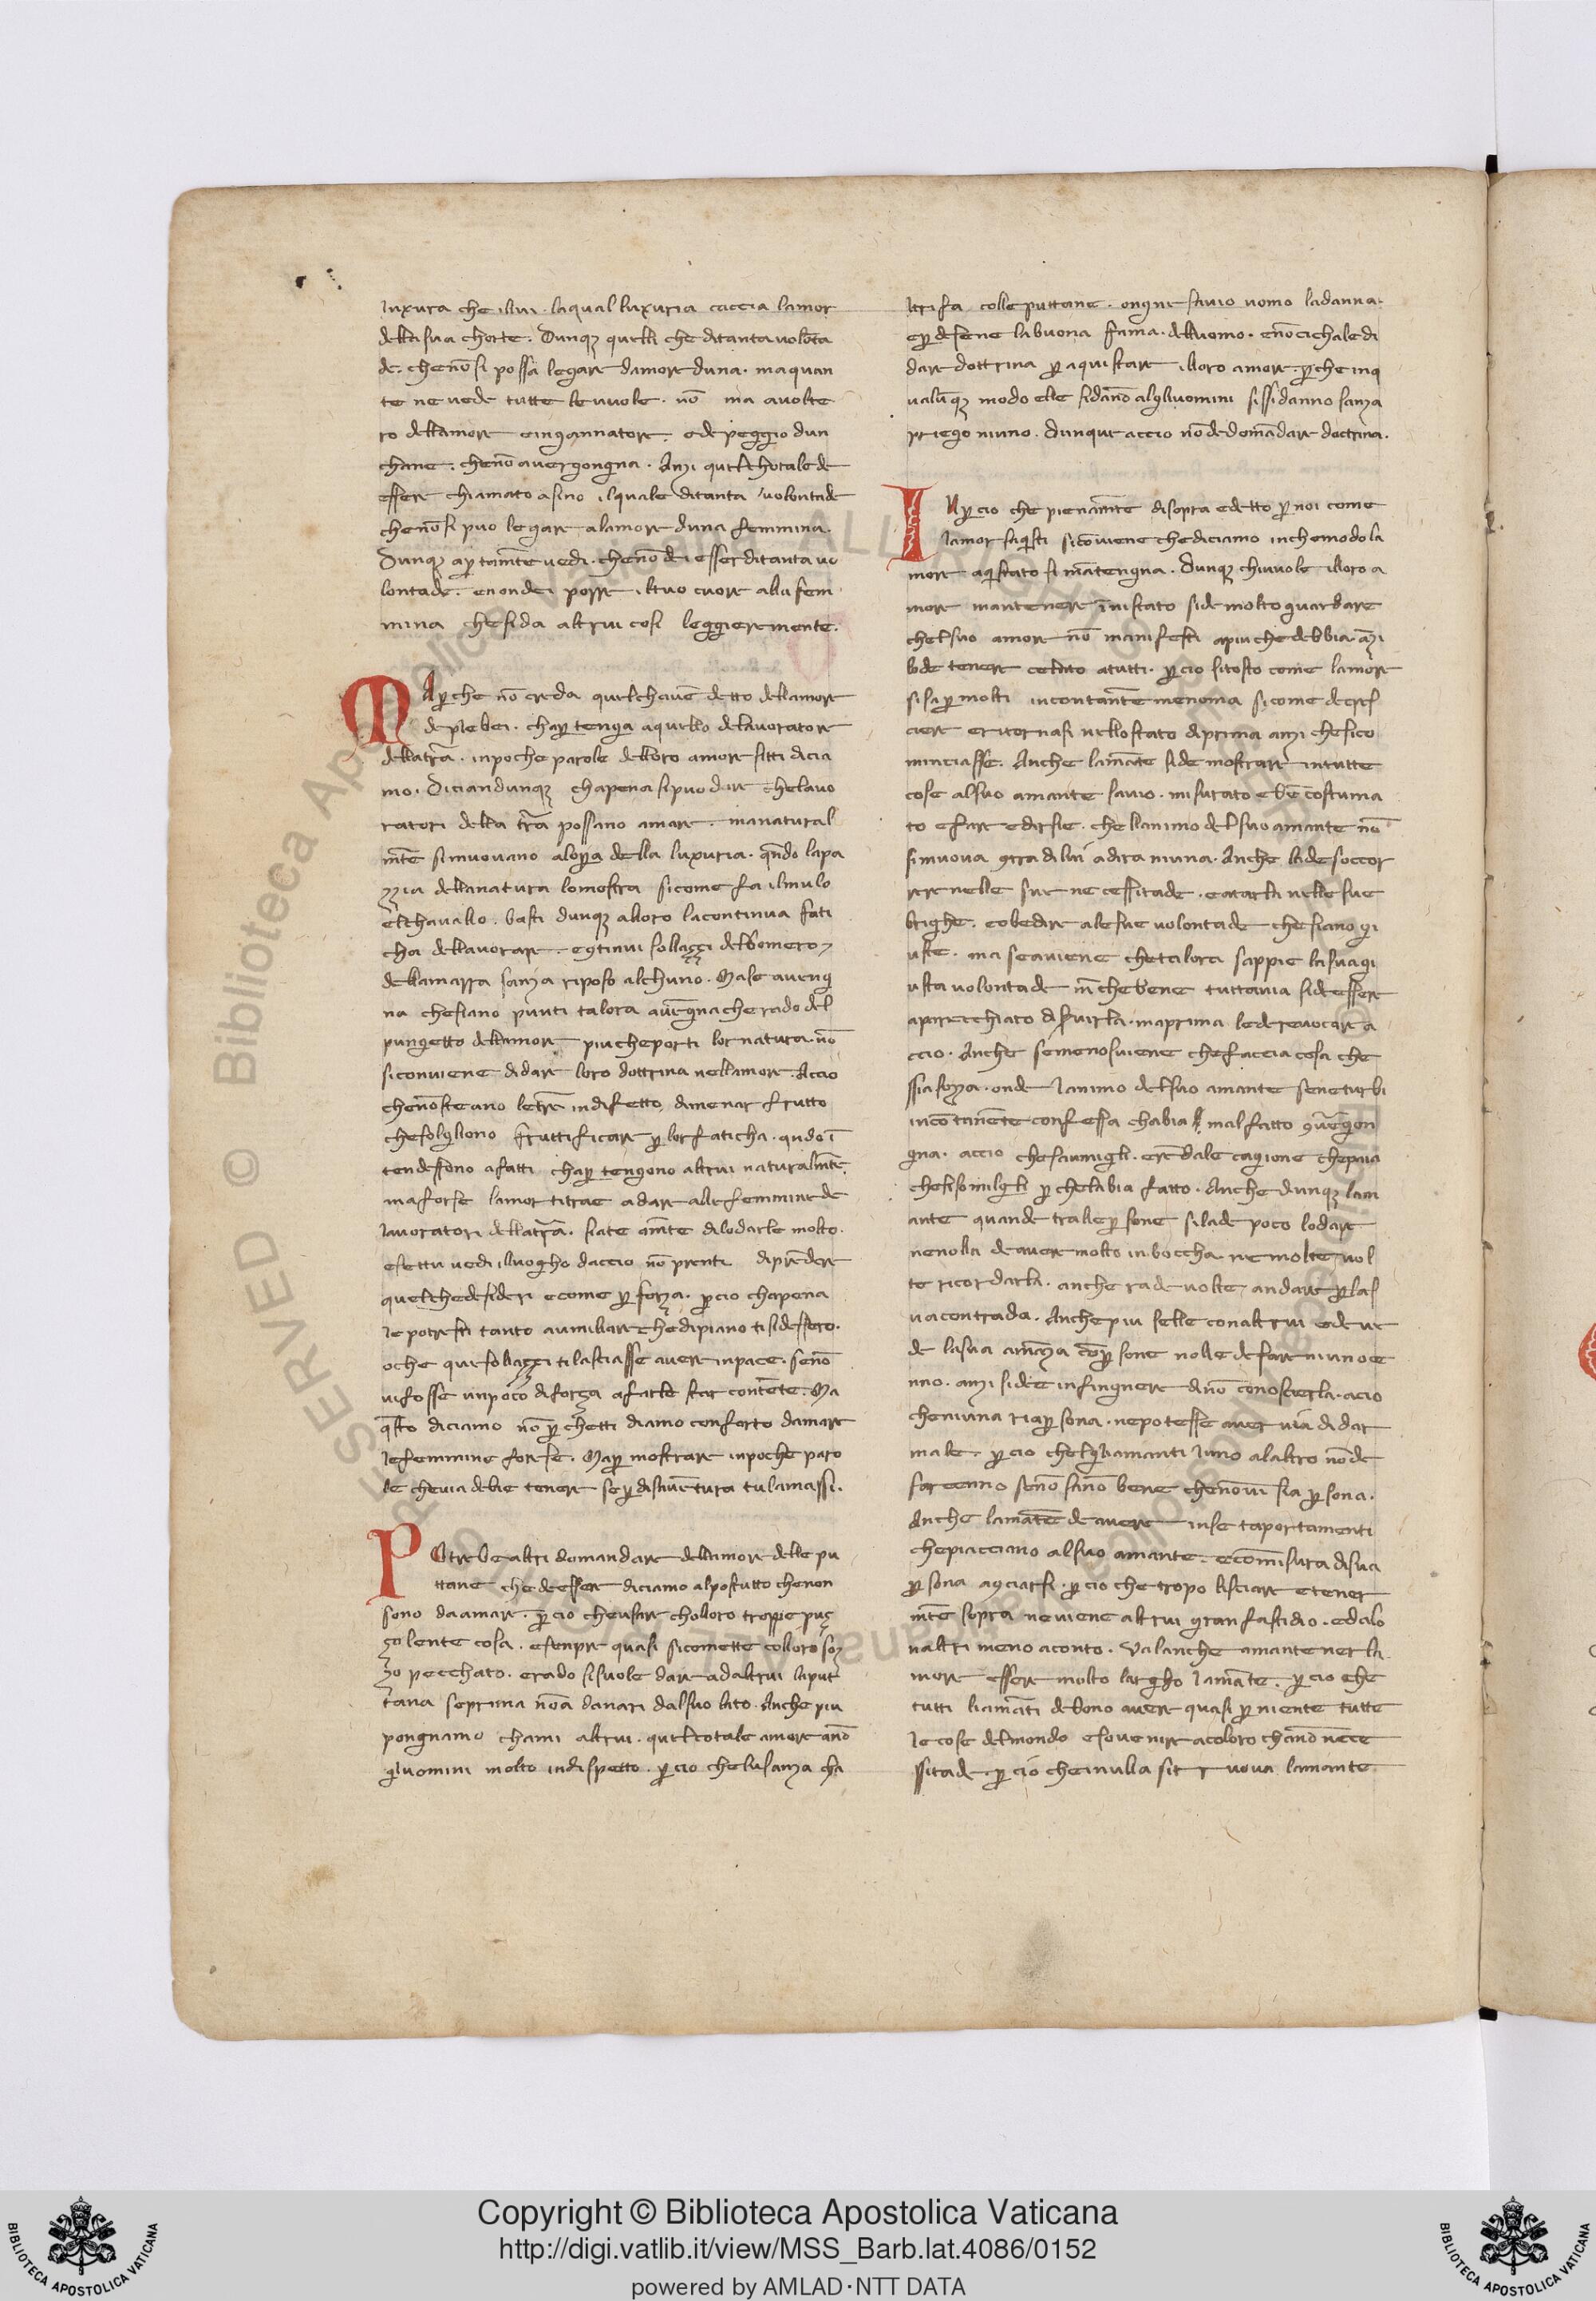 luxura che illui · laqual luxuria caccia lamor
della sua chorte. Dunqꝫ quelli che ditanta volōta
de · chenōsi possa legare damore duna · ma quan
te ne vede tutte levuole · nō ma avolte
ro dellamore e inghannatore · ede peggio dun
chane · chenōa vergongna · Anzi quelchotale de
esser chiamato asino ilquale ditanta volontade
chenōsi puo legare alamore duna femmina.
Dunqꝫ aꝑtamēte vedi · chenō dei esser ditanta vo
lontade · enondei porre iltuo cuore alla fem
mina chesida altrui cosi leggieremente.
MAꝑche nō creda quelchavē detto dellamore
de plebei · chaꝑtenga aquello delavoratore
dellatr̄a · inpoche parole delloro amore sitti dicia
mo · Diciandunqꝫ chapena sipuo dare chelavo
ratori della tr̄a possano amare · manatural
mēte simuovano aloꝑa della luxuria · qn̄do lapa
zzia dellanatura lomostra sicome fa ilmulo
elchavallo · basti dunqꝫ alloro lacontinua fati
cha dellavorare · e ꝯtinui sollaççi delbomero ⁊
dellamarra sanza riposo alchuno · Mase aveng
na chesiano punti talora avēgnacherado del
pungetto dellamore piucheporti lor natura · nō
siconviene didare loro dottrina nellamore · Accio
chenōsteano letr̄e indifetto dimenar frutto
chesolgliono fruttificare ꝑ lor faticha · qn̄do ī
tendessono afatti chaꝑtengono altrui naturalmēte ·
maforse lamor titrae adare alle femmine de
lavoratori dellatr̄a · siate amēte dilodarle molto ·
esettu vedi illuogho daccio nō prenti diprēdere
quelchedesideri e come ꝑ forza · ꝑcio chapena
le potresti tanto aumiliare chedipiano tisidessero ·
oche quesollaççi tilasciasse aver inpace · senō
vifosse unpoco diforça afarle star contēte · Ma
q̄sto diciamo nō ꝑchetti diamo conforto damare
lefemmine forese · Maꝑ mostrare inpoche paro
le chevia debie tenere se ꝑ disavētura tulamassi.
POtrebe altri domandare dellamore delle pu
ttane che deesser diciamo alpostutto chenon
sono daamare · ꝑcio cheusare cholloro troppie puç
çolente cosa · esenpre quasi sicomette colloro soz
zo pecchato · erado sisuole dare adaltrui laput
tana seprima nōa danari dalsuo lato · Anche piu
pongnamo chami altrui · quelcotale amore anō
gliuomini molto indispetto · ꝑcio chelusanza cha
ltri fa colle puttane · ongne savio uomo ladanna ·
eꝑdesene labuona fama · delluomo · enōcichale di
dare dottrina ꝑ aquistare illoro amore · ꝑche inq
valūqꝫ modo elle sidanō algliuomini sissidanno sanza
priego niuno · Dunque accio nōde domādare doctrina.
INꝑcio che pienamēte disopra edetto ꝑ noi come
lamor saq̄sti sicōviene chediciamo inchemodo la
more aq̄istato si mātengna · Dunqꝫ chivuole illoro a
more mantenere īnistato side molto guardare
chelsuo amore nō manifesti apiu chedebbia · āzi
lode tenere celato atutti · ꝑcio sitosto come lamore
sisa ꝑ molti incontanēte menoma sicome decres
ciere eritornasi nellostato diprima anzi chesico
minciasse · Anche lamāte side mostrare intutte
cose alsuo amante savio · misurato ebē costuma
to efare edirsie · che llanimo delsuo amante nō
simuova ꝯtradilui adira niuna · Anche lidesoccor
rere nelle sue necessitade · eatarla nelle sue
brighe · eobedire ale sue volontade chesiano gi
uste · ma seaviene chetalora sappie lasuagi
usta volontade mēchebene tuttavia sideesser
aparecchiato diservirla · maprima lederevocare a
ccio · Anche semenosviene chefaccia cosa che
ssiasoza · onde lanimo delsuo amante seneturbi
incōtanēte confessa chabia malfatto ꝯvergon
gna · accio chesaumigli · erēdale cagione chepaia
chesisomilgli ꝑchelabia fatto · Anche dunqꝫ lam
ante quande tralleꝑsone silade poco lodare
nenolla deaver molto inboccha ne molte vol
te ricordarla · anche rade volte andare ꝑ las
uacontrada · Anche piu selle conaltrui edeve
de lasua amāza cōꝑsone nolle defare niunoce
nno · anzi sidee infingnere dinō conoscierla · acio
cheniuna riaꝑsona · nepotesse aver via didar
male · ꝑcio chelgliamanti luno alaltro nōde
farcenno senō sāno bene chenōvi sia ꝑsona ·
Anche lamātēde avere inse taportamenti
chepiacciano alsuo amante · ecōmisura disua
ꝑsona açciarsi · ꝑcio che tropo lisciare etener
mēte sopra neviene altrui gran fastidio · edalo
naltri meno aconto · Valanche amantener la
more esser molto largho lamāte · ꝑcio che
tutti liamāti debono avere quasi ꝑ niente tutte
le cose delmondo esovenire acoloro chānō nece
ssitade · ꝑcio cheinulla sitruova lamante
Copyright © Biblioteca Apostolica Vaticana
http://digi.vatlib.it/view/MSS_Barb.lat.4086/0152
powered by AMLAD·NTT DATA